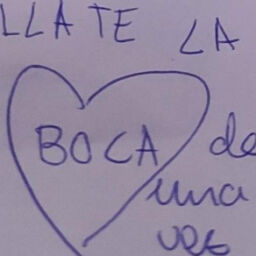 LLATE LA
BOCA de
una
ves